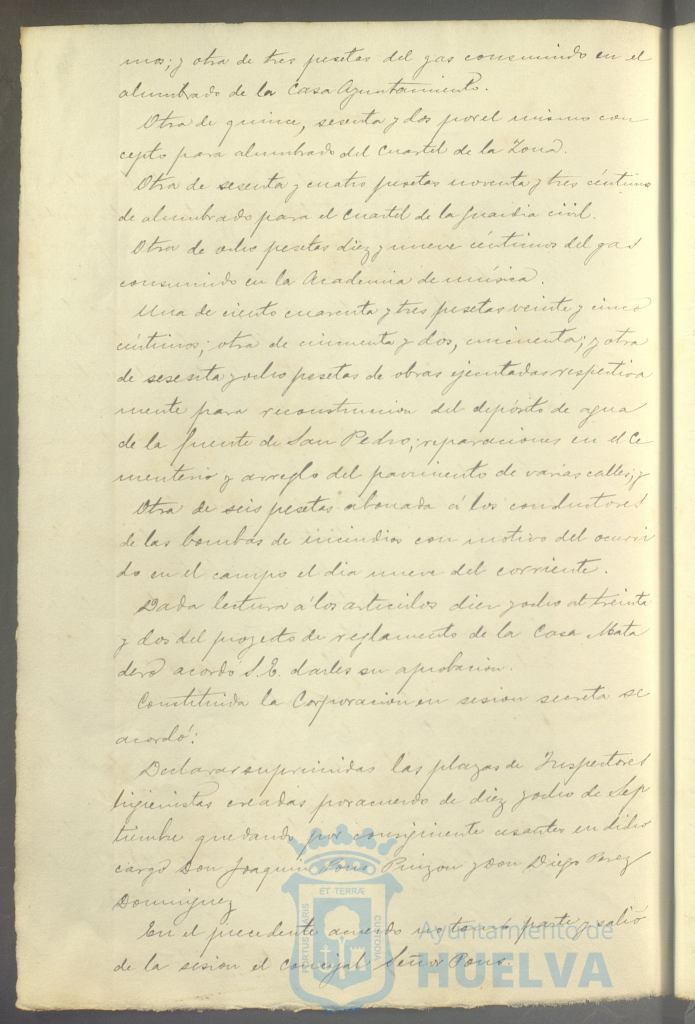 mos; y otra de tres pesetas del gas consumido en el
alumbrado de la Casa Ayuntamiento.
Otra de quince, sesenta y dos por el mismo con
cepto para alumbrado del Cuartel de la Zona.
Otra de sesenta y cuatro pesetas noventa y tres céntimos
de alumbrado para el Cuartel de la Guardia civil.
Otra de ocho pesetas diez y nueve céntimos del gas
consumido en la Academia de música.
Una de ciento cuarenta y tres pesetas veinte y cinco
céntimos; otra de cincuenta y dos, cincuenta; y otra
de sesenta y ocho pesetas de obras ejecutadas respectiva
mente para reconstruccion del depósito de agua
de la fuente de San Pedro; reparaciones en el Ce
menterio y arreglo del pavimento de varias calles; y
Otra de seis pesetas abonada á los conductores
de las bombas de incendios con motivo del ocurri
do en el campo el dia nueve del corriente.
Dada lectura á los artículos diez y ocho al treinta
y dos del proyecto de reglamento de la Casa Mata
dero acordó S.E. darles su aprobacion.
Constituida la Corporacion en sesion secreta se
acordó:
Declarar suprimidas las plazas de Inspectores
higienistas creadas por acuerdo de diez y ocho de Sep
tiembre quedando por consiguiente cesantes en dicho
cargo Don Joaquin Pons Pinzon y Don Diego Perez
Dominguez
En el precedente acuerdo no tomó parte y salió
de la sesion el Concejal Señor Pons.
ET TERRÆ
PORTUS MARIS
CUSTODIA
Ayuntamiento de
HUELVA